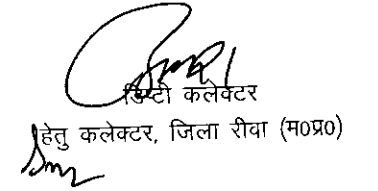 डिप्टी कलेक्टर
हेतु कलेक्टर, जिला रीवा (म0प्र0)